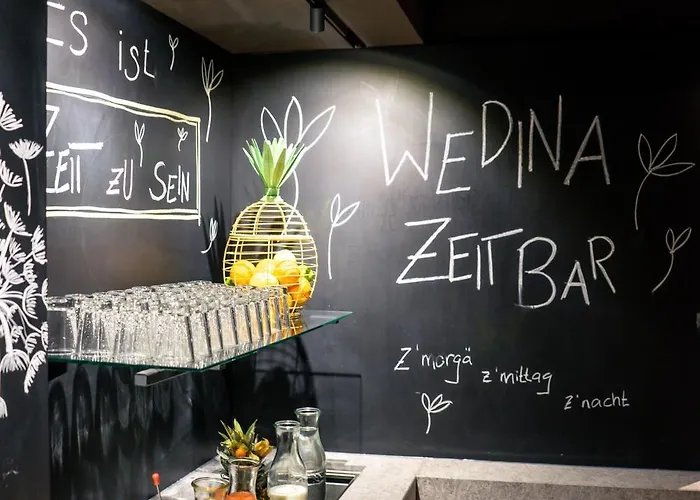 ES
ist
ZEIT ZU SEIN
WEDINA
ZEIT BAR
Z'morgä
z'mittag
z'nacht